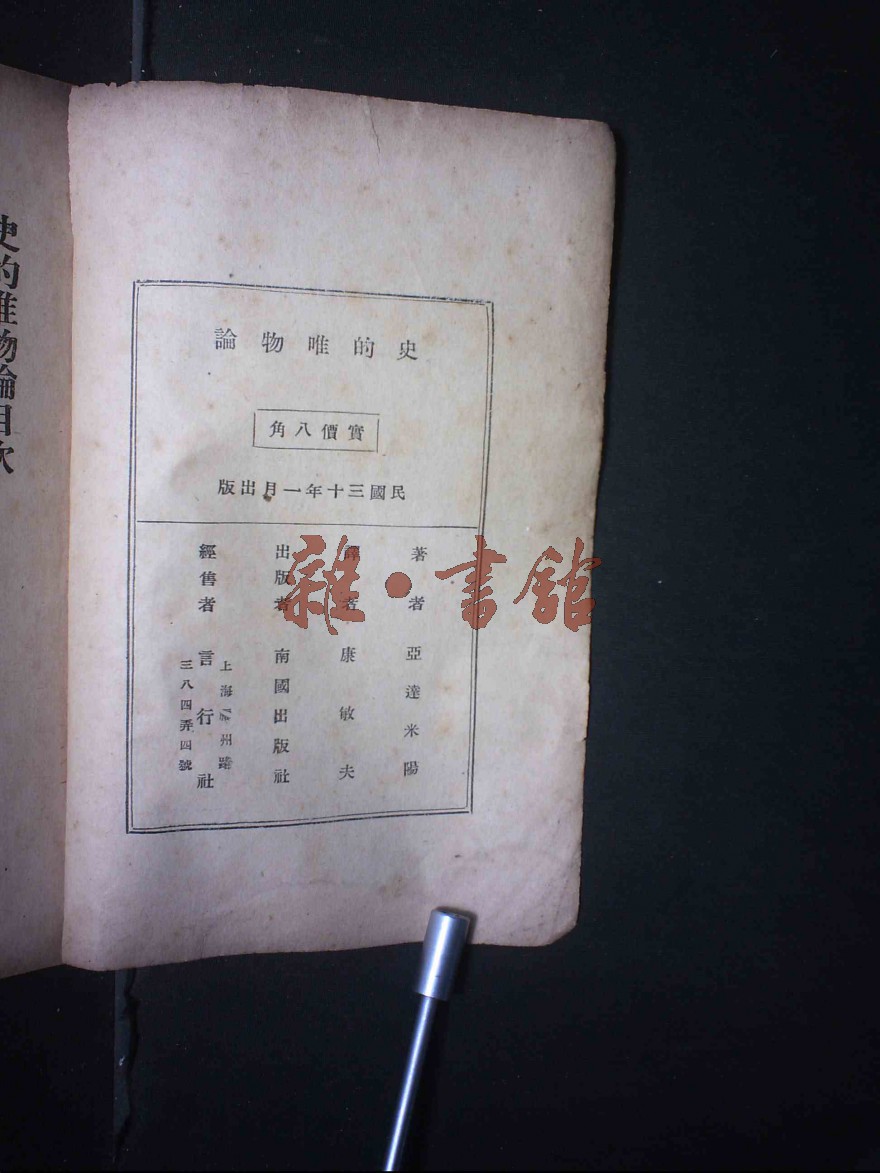 史的唯物論
實價八角
民國三十年一月出版
著者 亞達米陽
譯者 康敏夫
出版者 南國出版社
經售者 言行社
上海 州路
三八四弄四號
史的唯物論目次
雜·書館